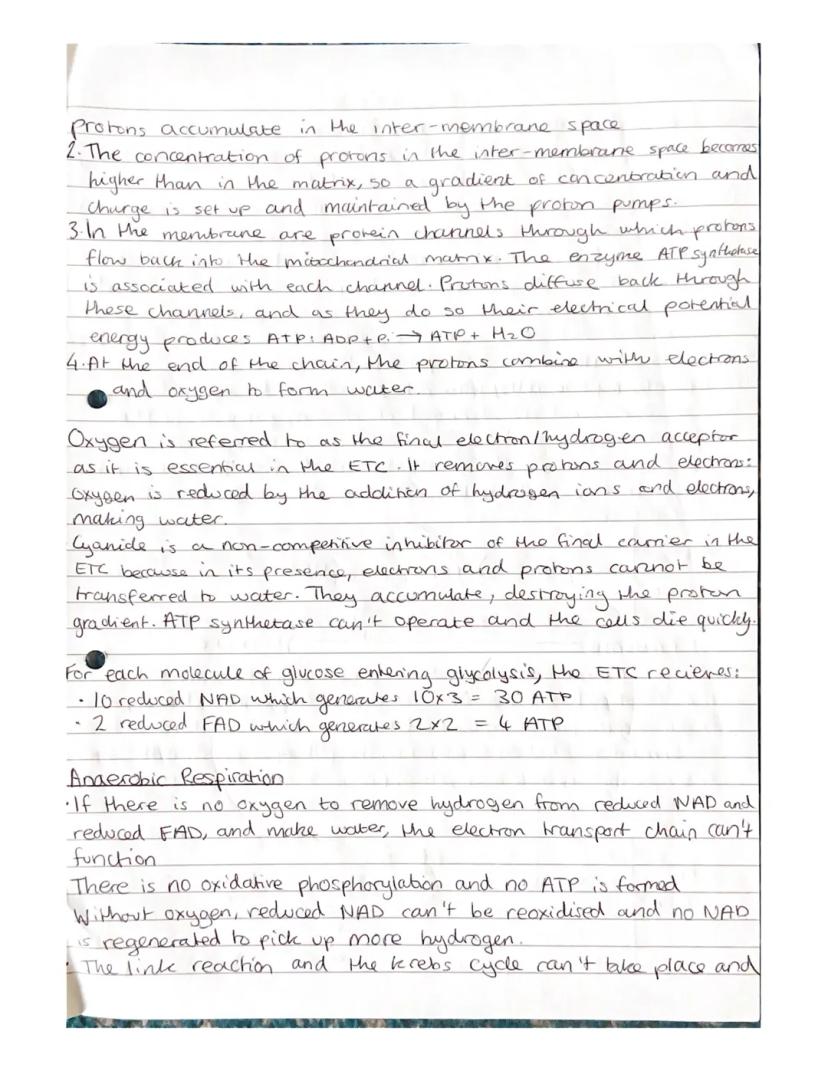 Protons accumulate in the inter-membrane space
2. The concentration of protons in the inter-membrane space becomes
higher than in the matrix, so a gradient of concentration and
charge is set up and maintained by the proton pumps.
3. In the membrane are protein channels through which protons
flow back into the mitochondrial matrix. The enzyme ATP synthetase
is associated with each channel. Protons diffuse back through
these channels, and as they do so their electrical potential
energy produces ATP: ADP + Pi → ATP + H2O
4. At the end of the chain, the protons combine with electrons
and oxygen to form water.
Oxygen is referred to as the final electron/hydrogen acceptor
as it is essential in the ETC. It removes protons and electrons:
oxygen is reduced by the addition of hydrogen ions and electrons,
making water.
Cyanide is a non-competitive inhibitor of the final carrier in the
ETC because in its presence, electrons and protons cannot be
transferred to water. They accumulate, destroying the proton
gradient. ATP synthetase can't operate and the cells die quickly.
For each molecule of glucose entering glycolysis, the ETC recieves:
· 10 reduced NAD which generates 10x3 = 30 ATP
· 2 reduced FAD which generates 2x2 = 4 ATP
Anaerobic Respiration
· If there is no oxygen to remove hydrogen from reduced NAD and
reduced FAD, and make water, the electron transport chain can't
function
There is no oxidative phosphorylation and no ATP is formed
Without oxygen, reduced NAD can't be reoxidised and no NAD
is regenerated to pick up more hydrogen.
· The link reaction and the krebs cycle can't take place and